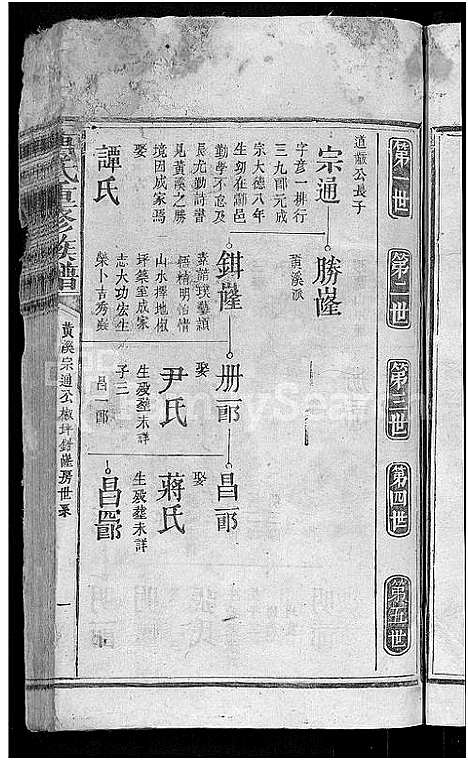 第一世
第二世
第三世
第四世
第五世
道巖公長子
宗通
字彥一排行
三九郎元成
宗大德八年
生幼在邵邑
勤學不怠及
長尤勤詩書
見黃溪之勝
境因成家焉
娶
譚氏
勝薩
黃溪派
鉗薩
素諳琰藝頴
悟精明怡情
山水擇地椒
坪築室成家
志大功宏生
榮卜吉秀蟲
冊一郎
娶
尹氏
生殁塟未詳
子三
昌一郎
昌二郎
娶
蔣氏
生殁塟未詳
昌四郎
氏重修族譜
黃溪宗通公椒坪鉗薩房世系
一